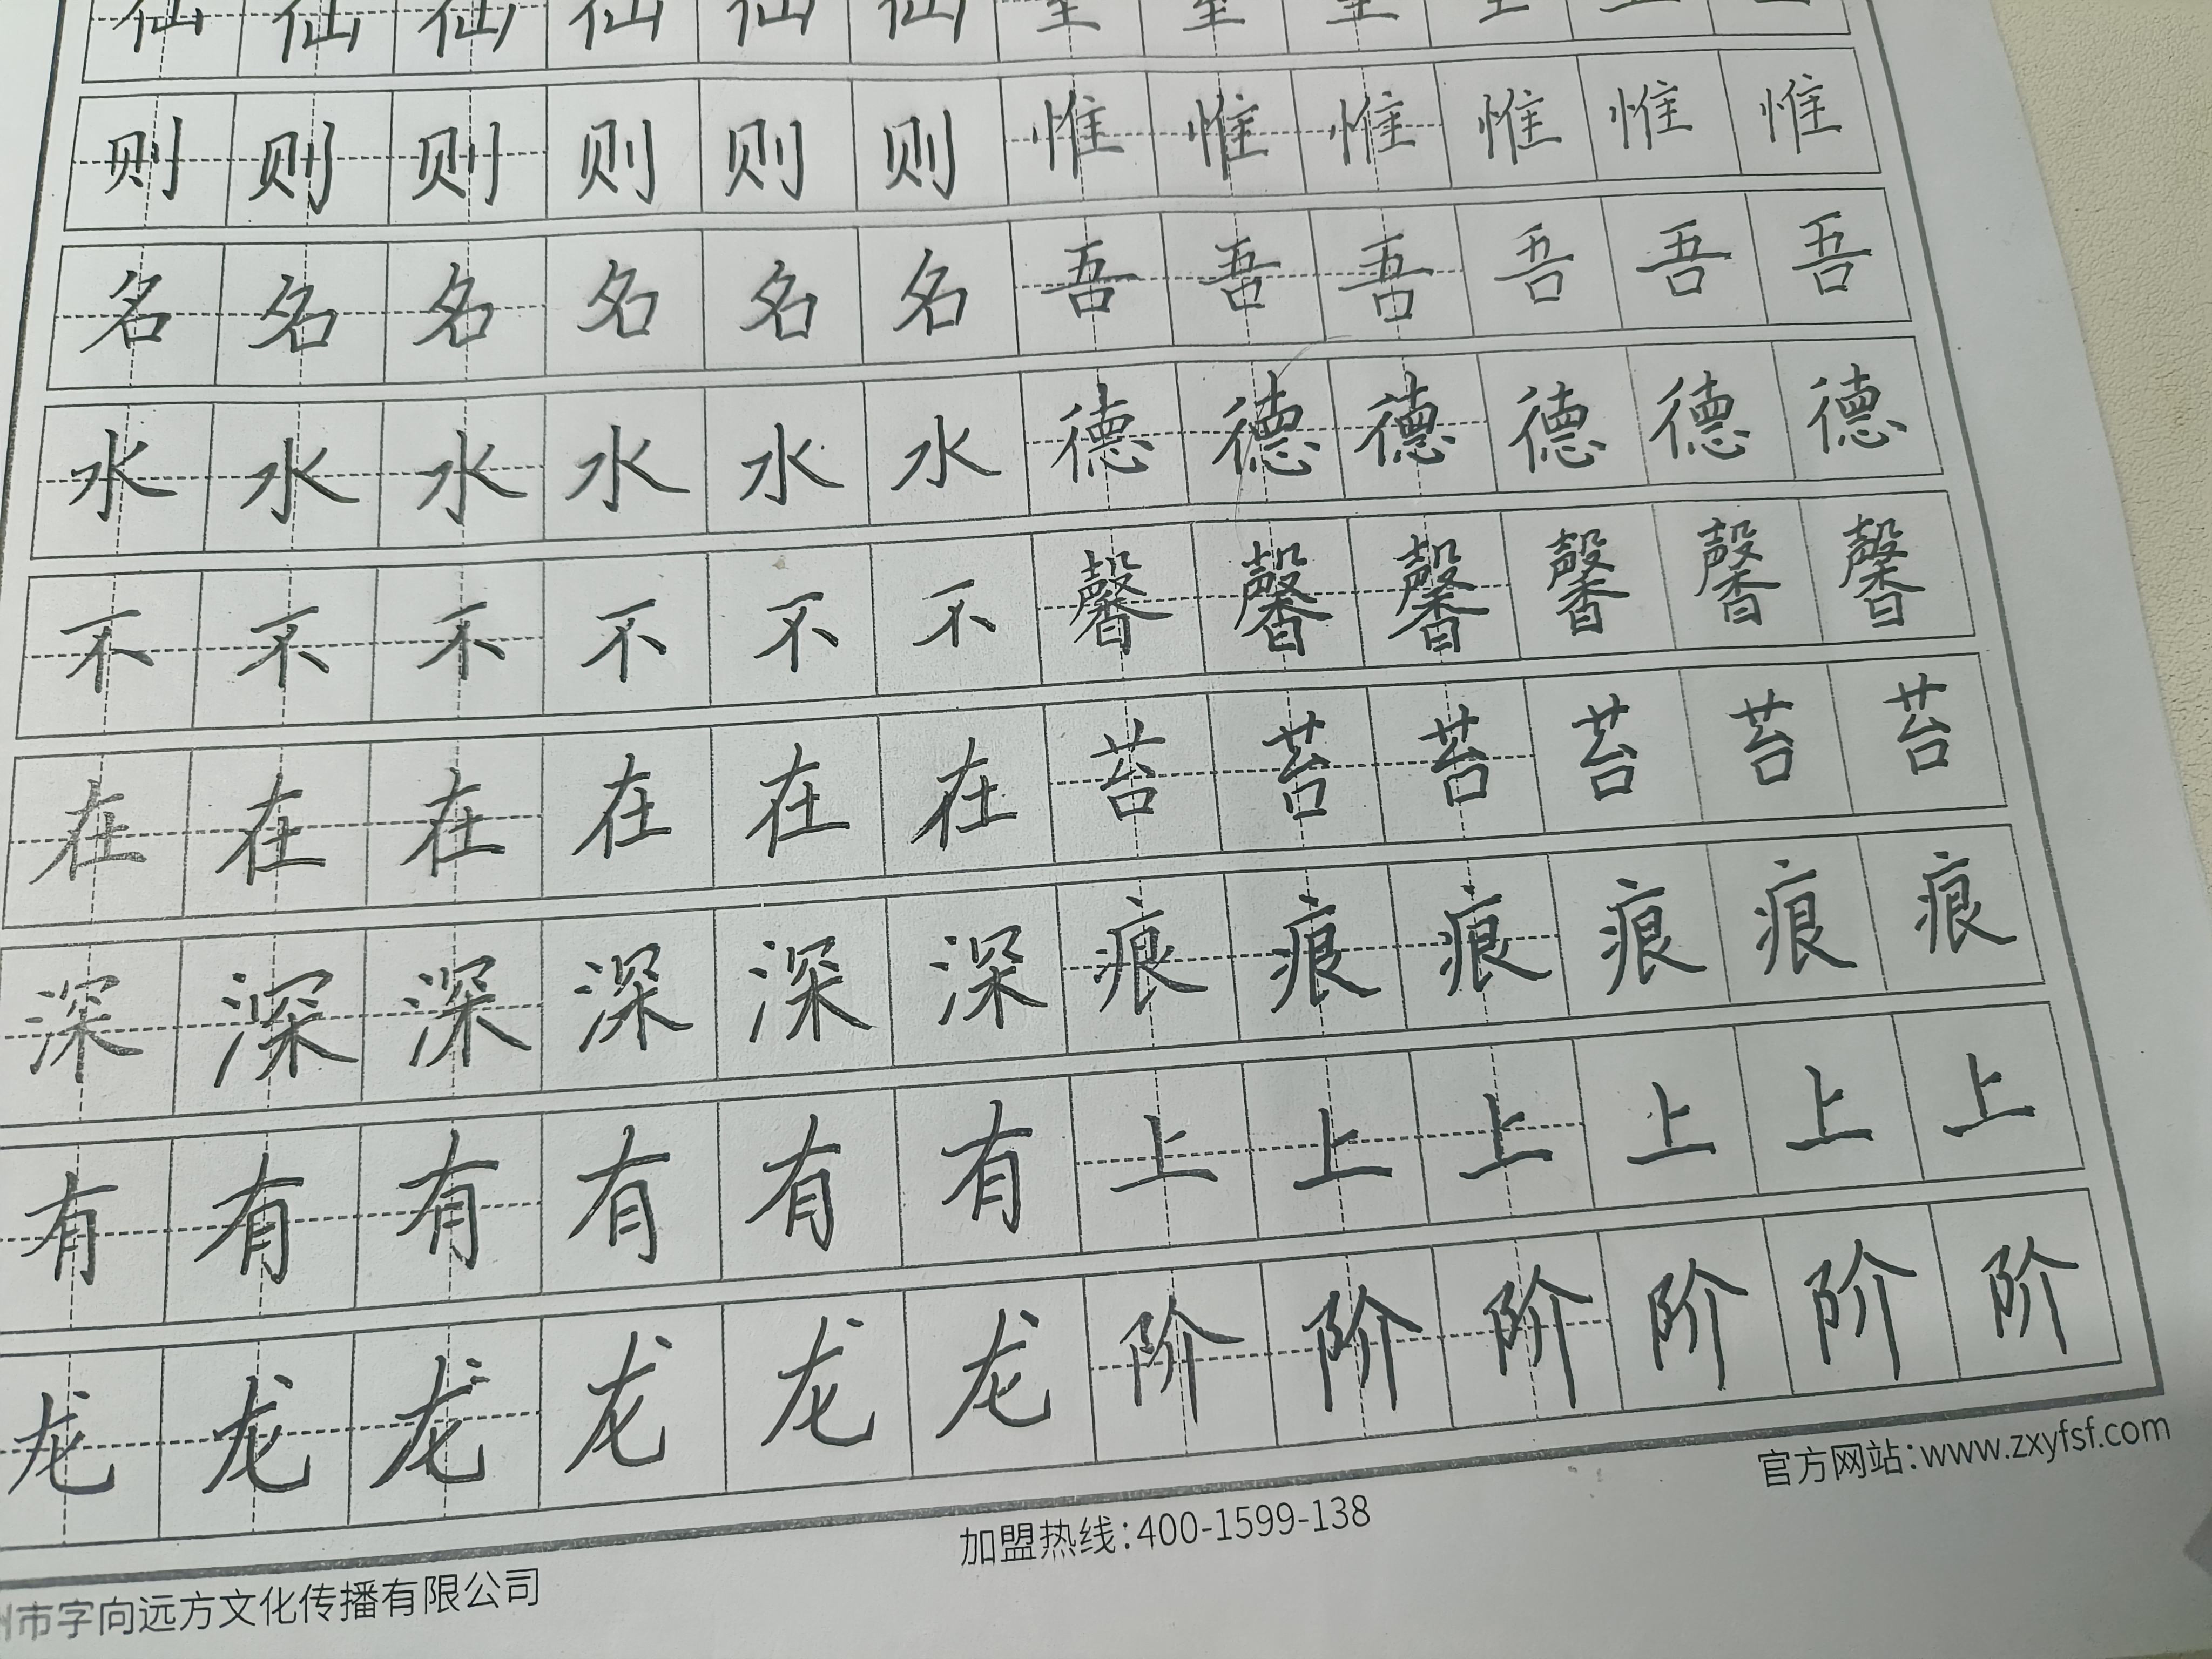 仙仙仙仙仙仙室室室室室室
则则则则则则惟惟惟惟惟惟
名名名名名名吾吾吾吾吾吾
水水水水水水德德德德德德
不不不不不不馨馨馨馨馨馨
在在在在在在苔苔苔苔苔苔
深深深深深深痕痕痕痕痕痕
有有有有有有上上上上上上
龙龙龙龙龙龙阶阶阶阶阶阶
州市字向远方文化传播有限公司 加盟热线:400-1599-138 官方网站:www.zxyfsf.com